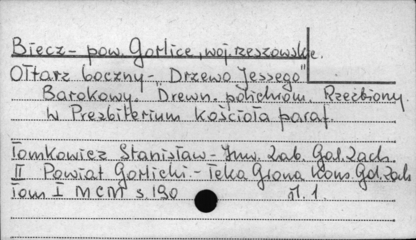 Biecz - pow. Gorlice, woj. rzeszowskie.
Ołtarz boczny - "Drzewo Jessego"
Barokowy. Drewn. polichrom. Rzeźbiony
W Presbiterium kościoła paraf.
Tomkowicz Stanisław - Inw. Zab. Gal. Zach.
II Powiat Gorlicki. - Teka Grona Kons. Gal. Zach
Tom I MCM s. 190 il. 1.